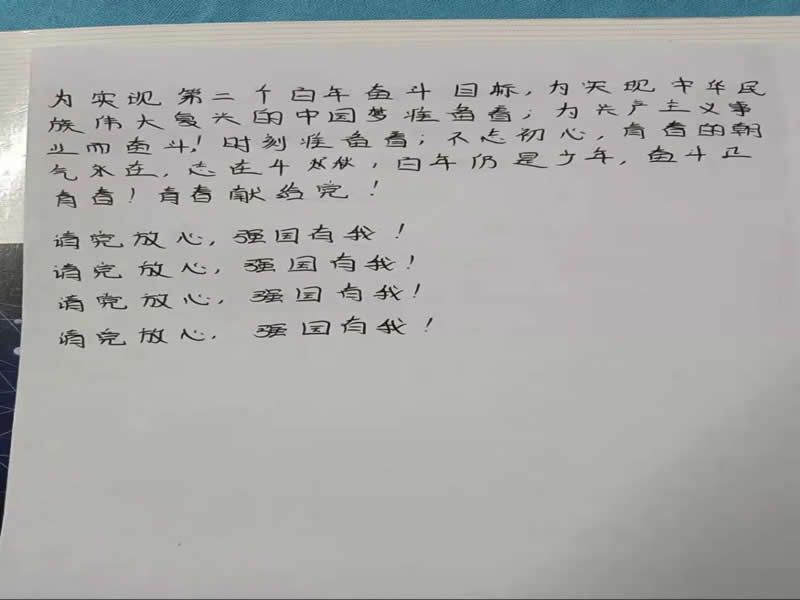 为实现第二个百年奋斗目标,为实现中华民
族伟大复兴的中国梦准备着;为共产主义事
业而奋斗!时刻准备着;不忘初心,青春的朝
气永在,志在千秋,百年仍是少年,奋斗正
青春!青春献给党!
请党放心,强国有我!
请党放心,强国有我!
请党放心,强国有我!
请党放心,强国有我!